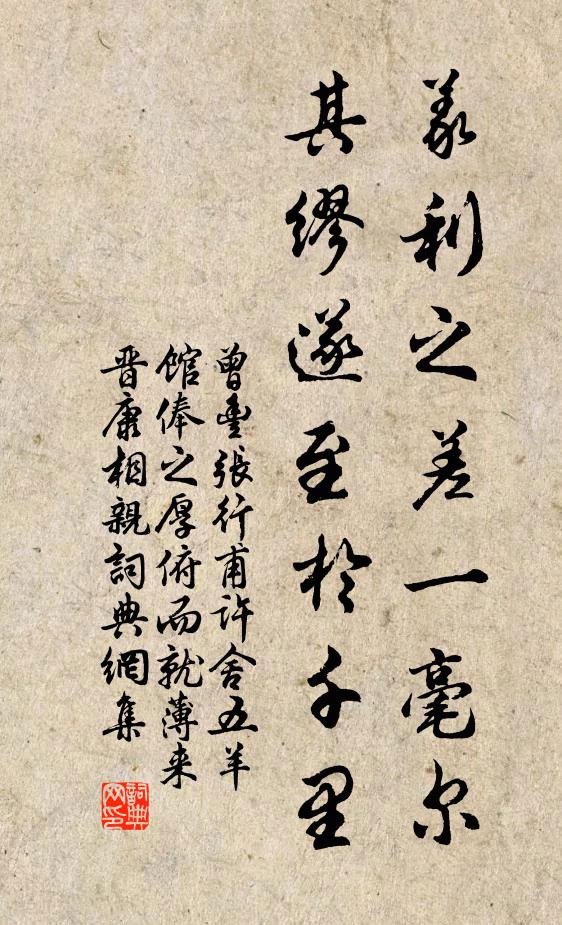 義利之差一毫尔
其繆遂至於千里
曾豐張行甫许舍五羊
館俸之厚俯而就薄来
晋康相親詞典網集
詞典网印